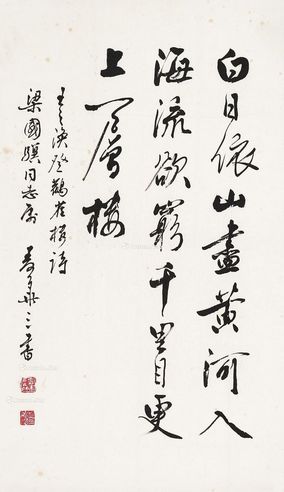 白日依山盡黄河入
海流欲窮千里目更
上一層樓
王之渙登鸛雀樓詩
梁國驥同志屬
書